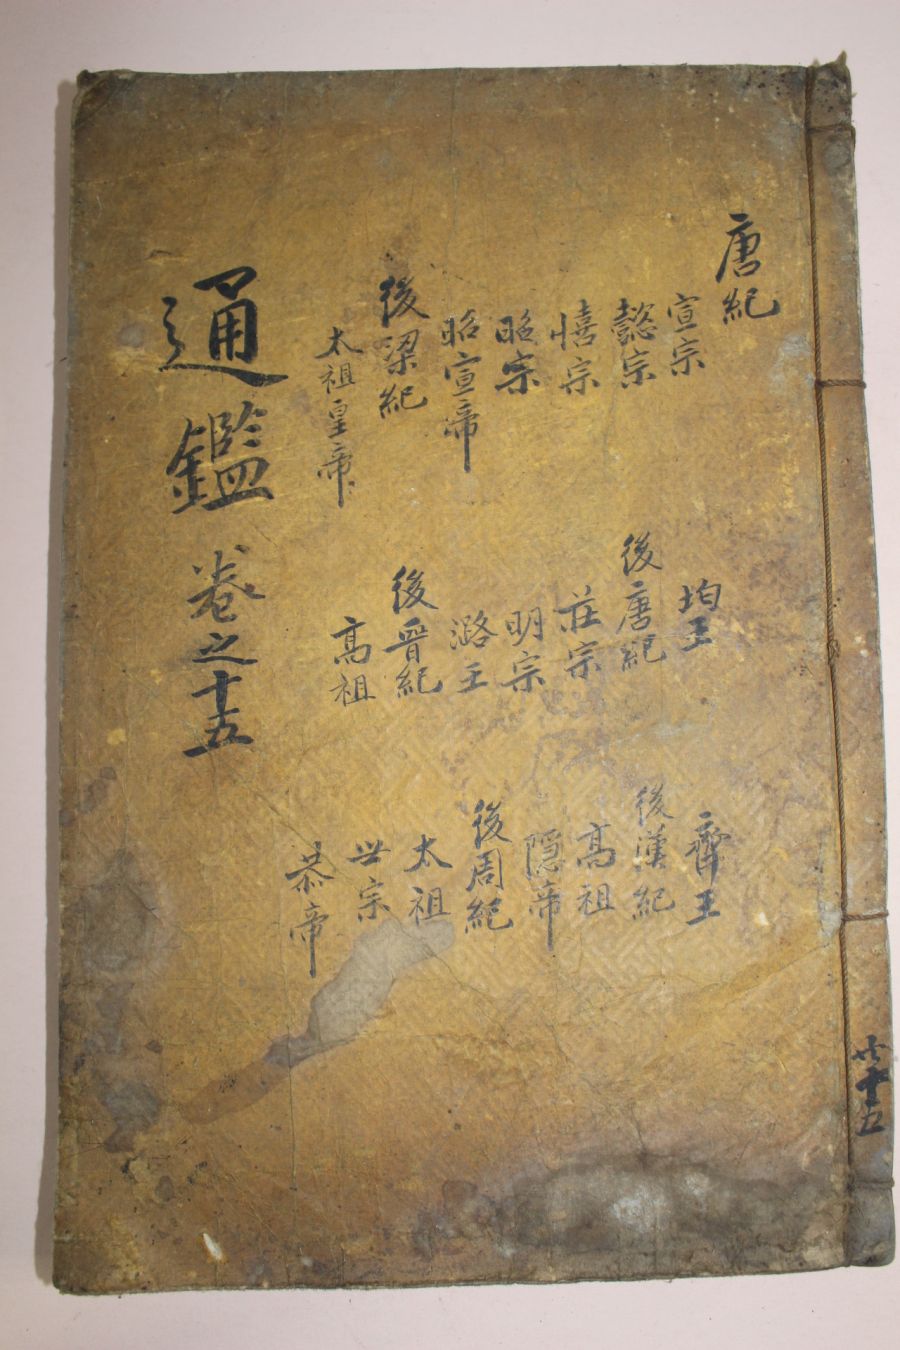 通鑑 卷之十五
唐紀
宣宗
懿宗
僖宗
昭宗
昭宣帝
後梁紀
太祖皇帝
均王
後唐紀
莊宗
明宗
潞王
後晉紀
高祖
齊王
後漢紀
高祖
隱帝
後周紀
太祖
世宗
恭帝
共十五